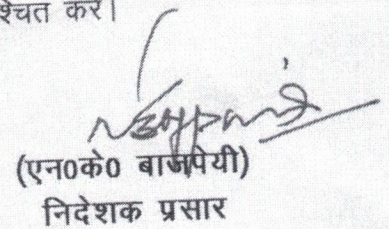 श्चित करें।
(एन0के0 बाजपेयी)
निदेशक प्रसार